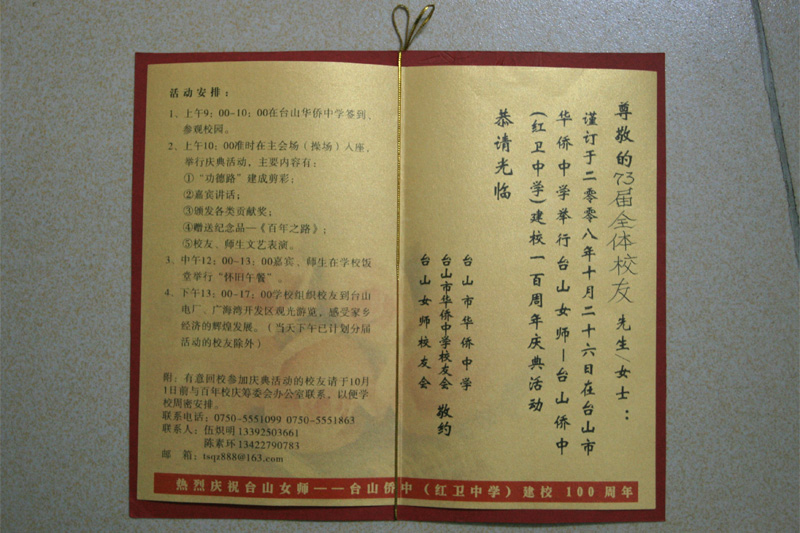 活动安排：
1、上午9：00-10：00在台山华侨中学签到、
参观校园。
2、上午10：00准时在主会场（操场）入座，
举行庆典活动，主要内容有：
①“功德路”建成剪彩；
②嘉宾讲话；
③颁发各类贡献奖；
④赠送纪念品—《百年之路》；
⑤校友、师生文艺表演。
3、中午12：00-13：00嘉宾、师生在学校饭
堂举行“怀旧午餐”。
4、下午13：00-17：00学校组织校友到台山
电厂、广海湾开发区观光游览，感受家乡
经济的辉煌发展。（当天下午已计划分届
活动的校友除外）
附：有意回校参加庆典活动的校友请于10月
1日前与百年校庆筹委会办公室联系，以便学
校周密安排。
联系电话：0750-5551099 0750-5551863
联系人：伍炽明 13392503661
陈素环 13422790783
邮 箱：tsqz888@163.com
尊敬的73届全体校友 先生/女士：
谨订于二零零八年十月二十六日在台山市
华侨中学举行台山女师—台山侨中
（红卫中学）建校一百周年庆典活动
恭请光临
台山市华侨中学
台山市华侨中学校友会 敬约
台山女师校友会
热烈庆祝台山女师——台山侨中（红卫中学）建校 100 周年